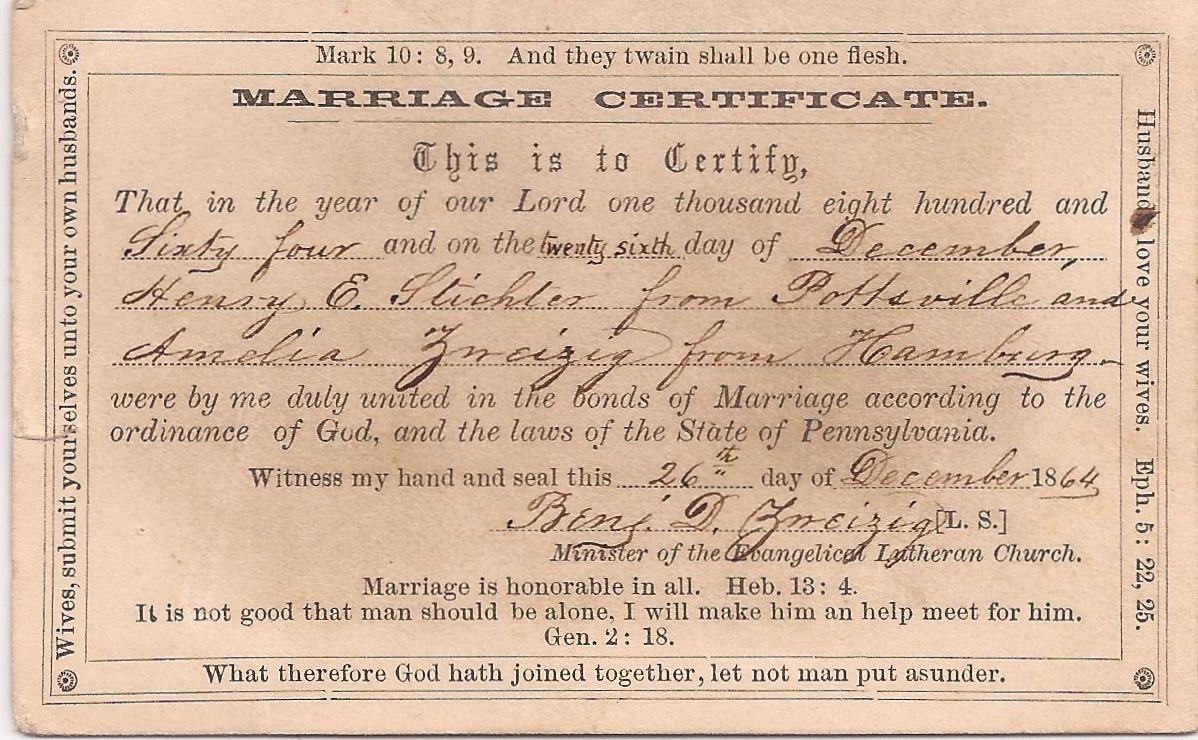 Mark 10: 8, 9. And they twain shall be one flesh.
MARRIAGE CERTIFICATE.
This is to Certify,
That in the year of our Lord one thousand eight hundred and
Sixty four and on the twenty sixth day of December,
Henry E. Stichter from Pottsville and
Amelia Zweizig from Hamburg
were by me duly united in the bonds of Marriage according to the
ordinance of God, and the laws of the State of Pennsylvania.
Witness my hand and seal this 26th day of December 1864
Benj. D. Zweizig [L. S.]
Minister of the Evangelical Lutheran Church.
Marriage is honorable in all. Heb. 13: 4.
It is not good that man should be alone, I will make him an help meet for him.
Gen. 2: 18.
What therefore God hath joined together, let not man put asunder.
Wives, submit yourselves unto your own husbands.
Husbands love your wives. Eph. 5: 22, 25.